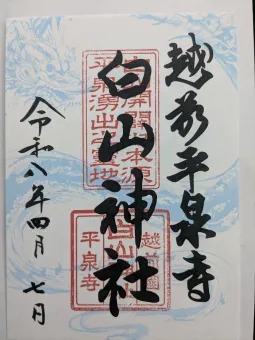 越前平泉寺
白山神社
令和八年四月七日
平泉湧出之霊地
越前國
平泉寺